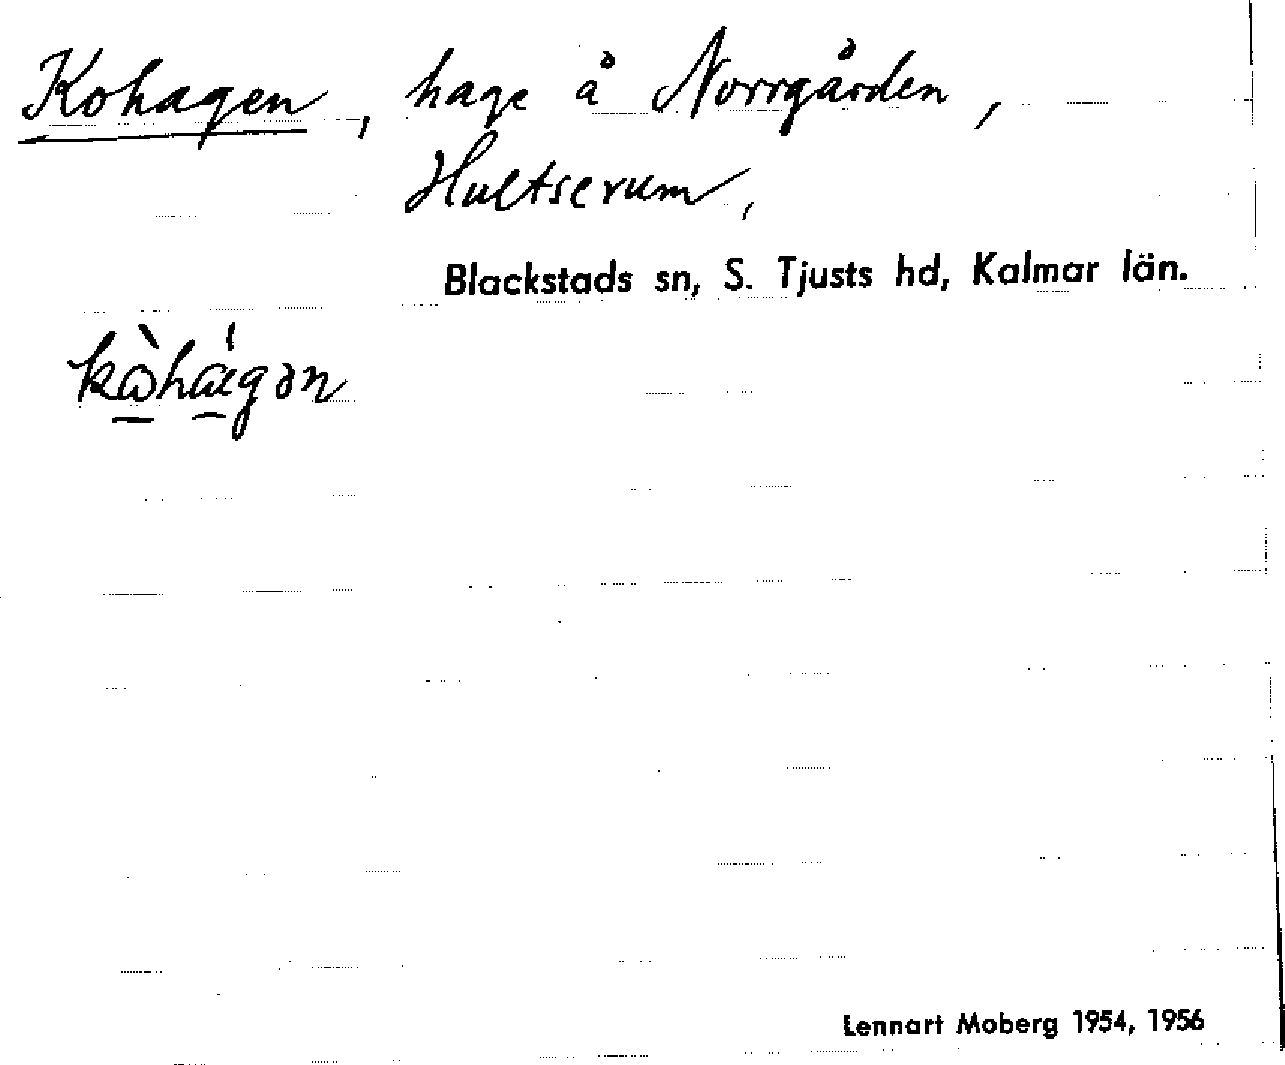 Kohagen, hage å Norrgården,
Hultserum,
Blackstads sn, S. Tjusts hd, Kalmar län.
Lennart Moberg 1954, 1956